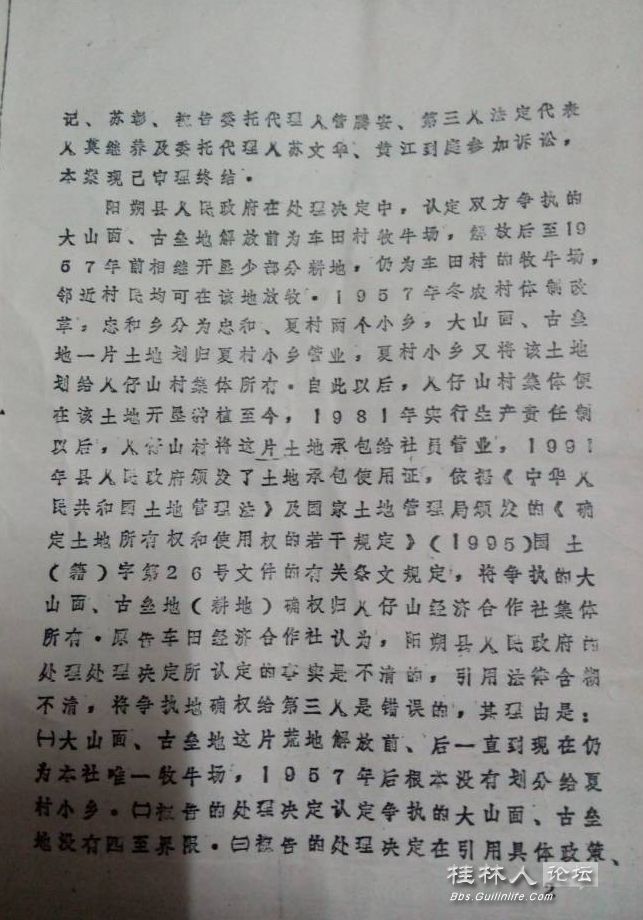 记、苏彰、被告委托代理人管腾安、第三人法定代表
人莫继养及委托代理人苏文华、黄江到庭参加诉讼，
本案现已审理终结。
阳朔县人民政府在处理决定中，认定双方争执的
大山面、古垒地解放前为车田村牧牛场，解放后至19
57年前相继开垦少部分耕地，仍为车田村的牧牛场，
邻近村民均可在该地放牧。1957年冬农村体制改
革，忠和乡分为忠和、夏村两个小乡，大山面、古垒
地一片土地划归夏村小乡管业，夏村小乡又将该土地
划给人仔山村集体所有。自此以后，人仔山村集体便
在该土地开垦种植至今，1981年实行生产责任制
以后，人仔山村将这片土地承包给社员管业，1991
年县人民政府颁发了土地承包使用证，依据《中华人
民共和国土地管理法》及国家土地管理局颁发的《确
定土地所有权和使用权的若干规定》（1995）国土
（籍）字第26号文件的有关条文规定，将争执的大
山面、古垒地（耕地）确权归人仔山经济合作社集体
所有。原告车田经济合作社认为，阳朔县人民政府的
处理处理决定所认定的事实是不清的，引用法律含糊
不清，将争执地确权给第三人是错误的，其理由是：
㈠大山面、古垒地这片荒地解放前、后一直到现在仍
为本社唯一牧牛场，1957年后根本没有划分给夏
村小乡。㈡被告的处理决定认定争执的大山面、古垒
地没有四至界限。㈢被告的处理决定在引用具体政策、
2
桂林人论坛
Bbs.Guilinlife.Com